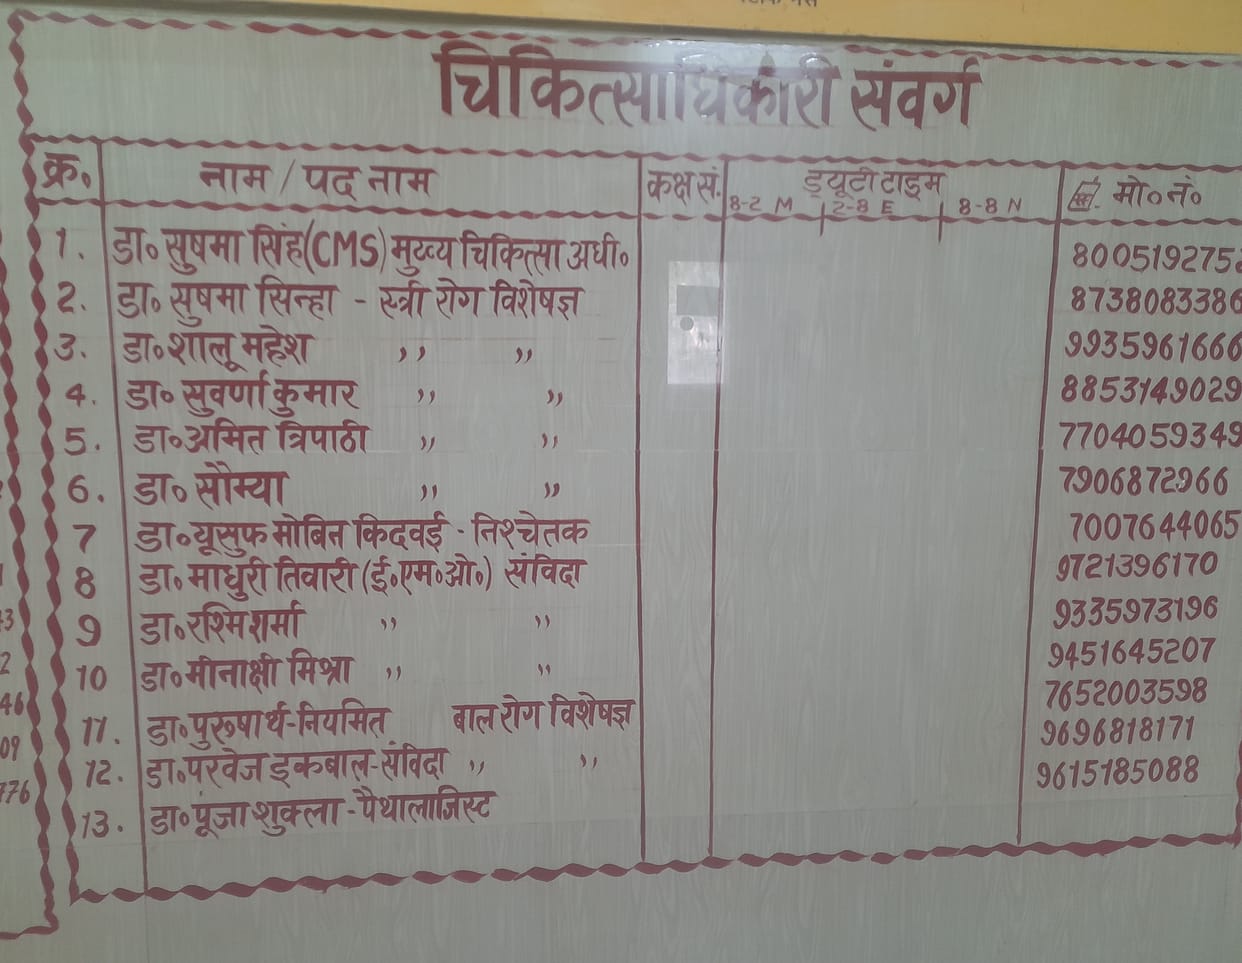 चिकित्साधिकारी संवर्ग
क्र. नाम / पद नाम कक्ष सं. ड्यूटी टाइम मो॰ नं॰
8-2 M 2-8 E 8-8 N
1. डा॰ सुषमा सिंह (CMS) मुख्य चिकित्सा अधी॰ 8005192752
2. डा॰ सुषमा सिन्हा - स्त्री रोग विशेषज्ञ 8738083386
3. डा॰ शालू महेश ,, ,, 9935961666
4. डा॰ सुवर्णा कुमार ,, ,, 8853149029
5. डा॰ अमित त्रिपाठी ,, ,, 7704059349
6. डा॰ सौम्या ,, ,, 7906872966
7 डा॰ यूसुफ मोबिन किदवई - निश्चेतक 7007644065
8 डा॰ माधुरी तिवारी (ई॰एम॰ओ॰) संविदा 9721396170
9 डा॰ रश्मि शर्मा ,, ,, 9335973196
10 डा॰ मीनाक्षी मिश्रा ,, ,, 9451645207
11. डा॰ पुरूषार्थ-नियमित बाल रोग विशेषज्ञ 7652003598
12. डा॰ परवेज इकबाल-संविदा ,, ,, 9696818171
13. डा॰ पूंजा शुक्ला - पैथालाजिस्ट 9615185088